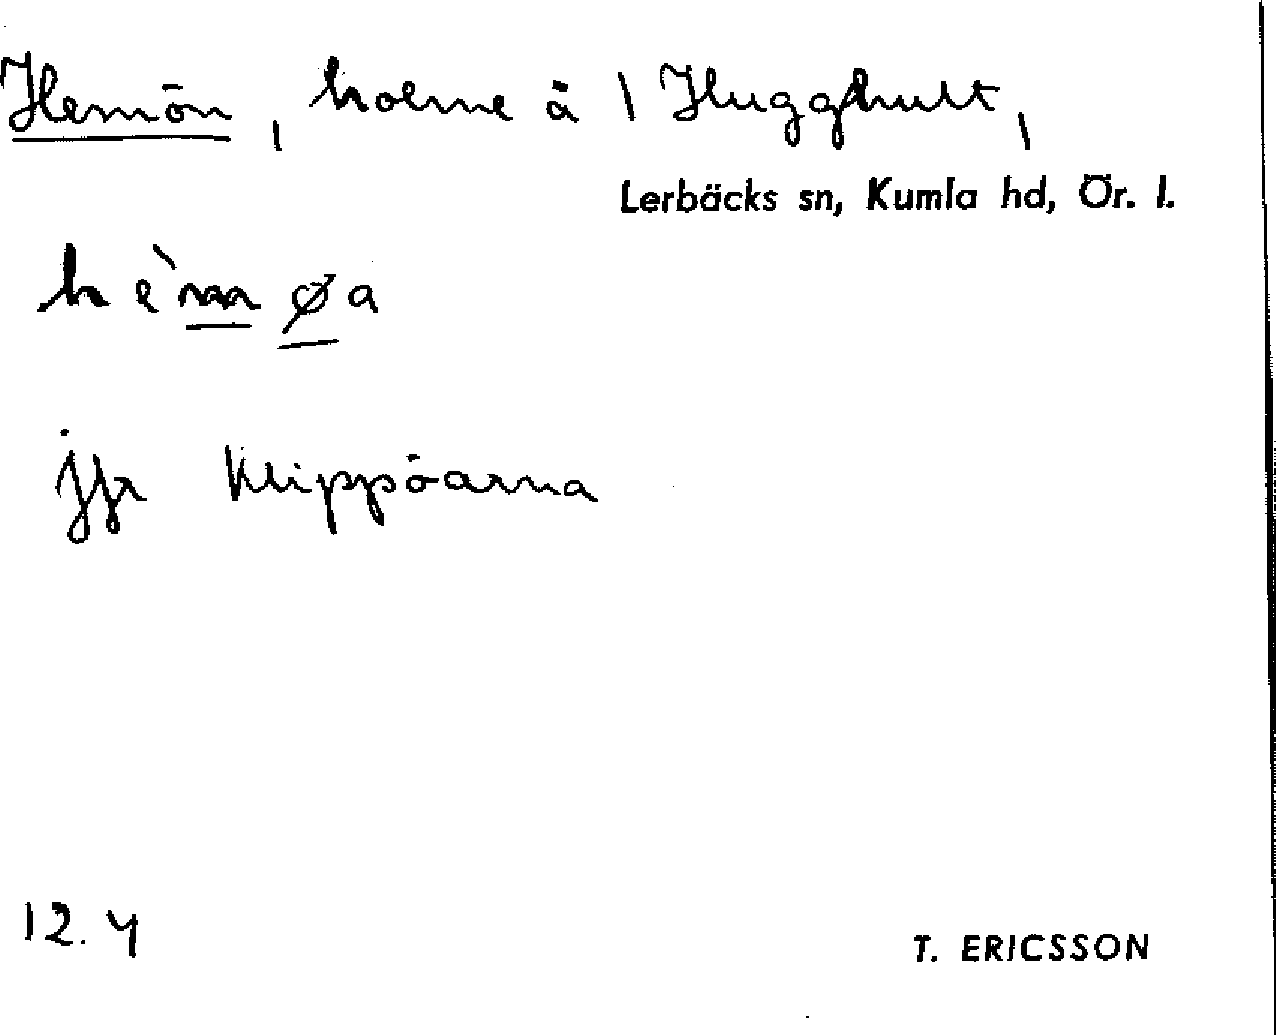 Hemön, holme å 1 Hugghult,
Lerbäcks sn, Kumla hd, Ör. l.
hè̀møa
jfr Klippöarna
12. 4
T. ERICSSON